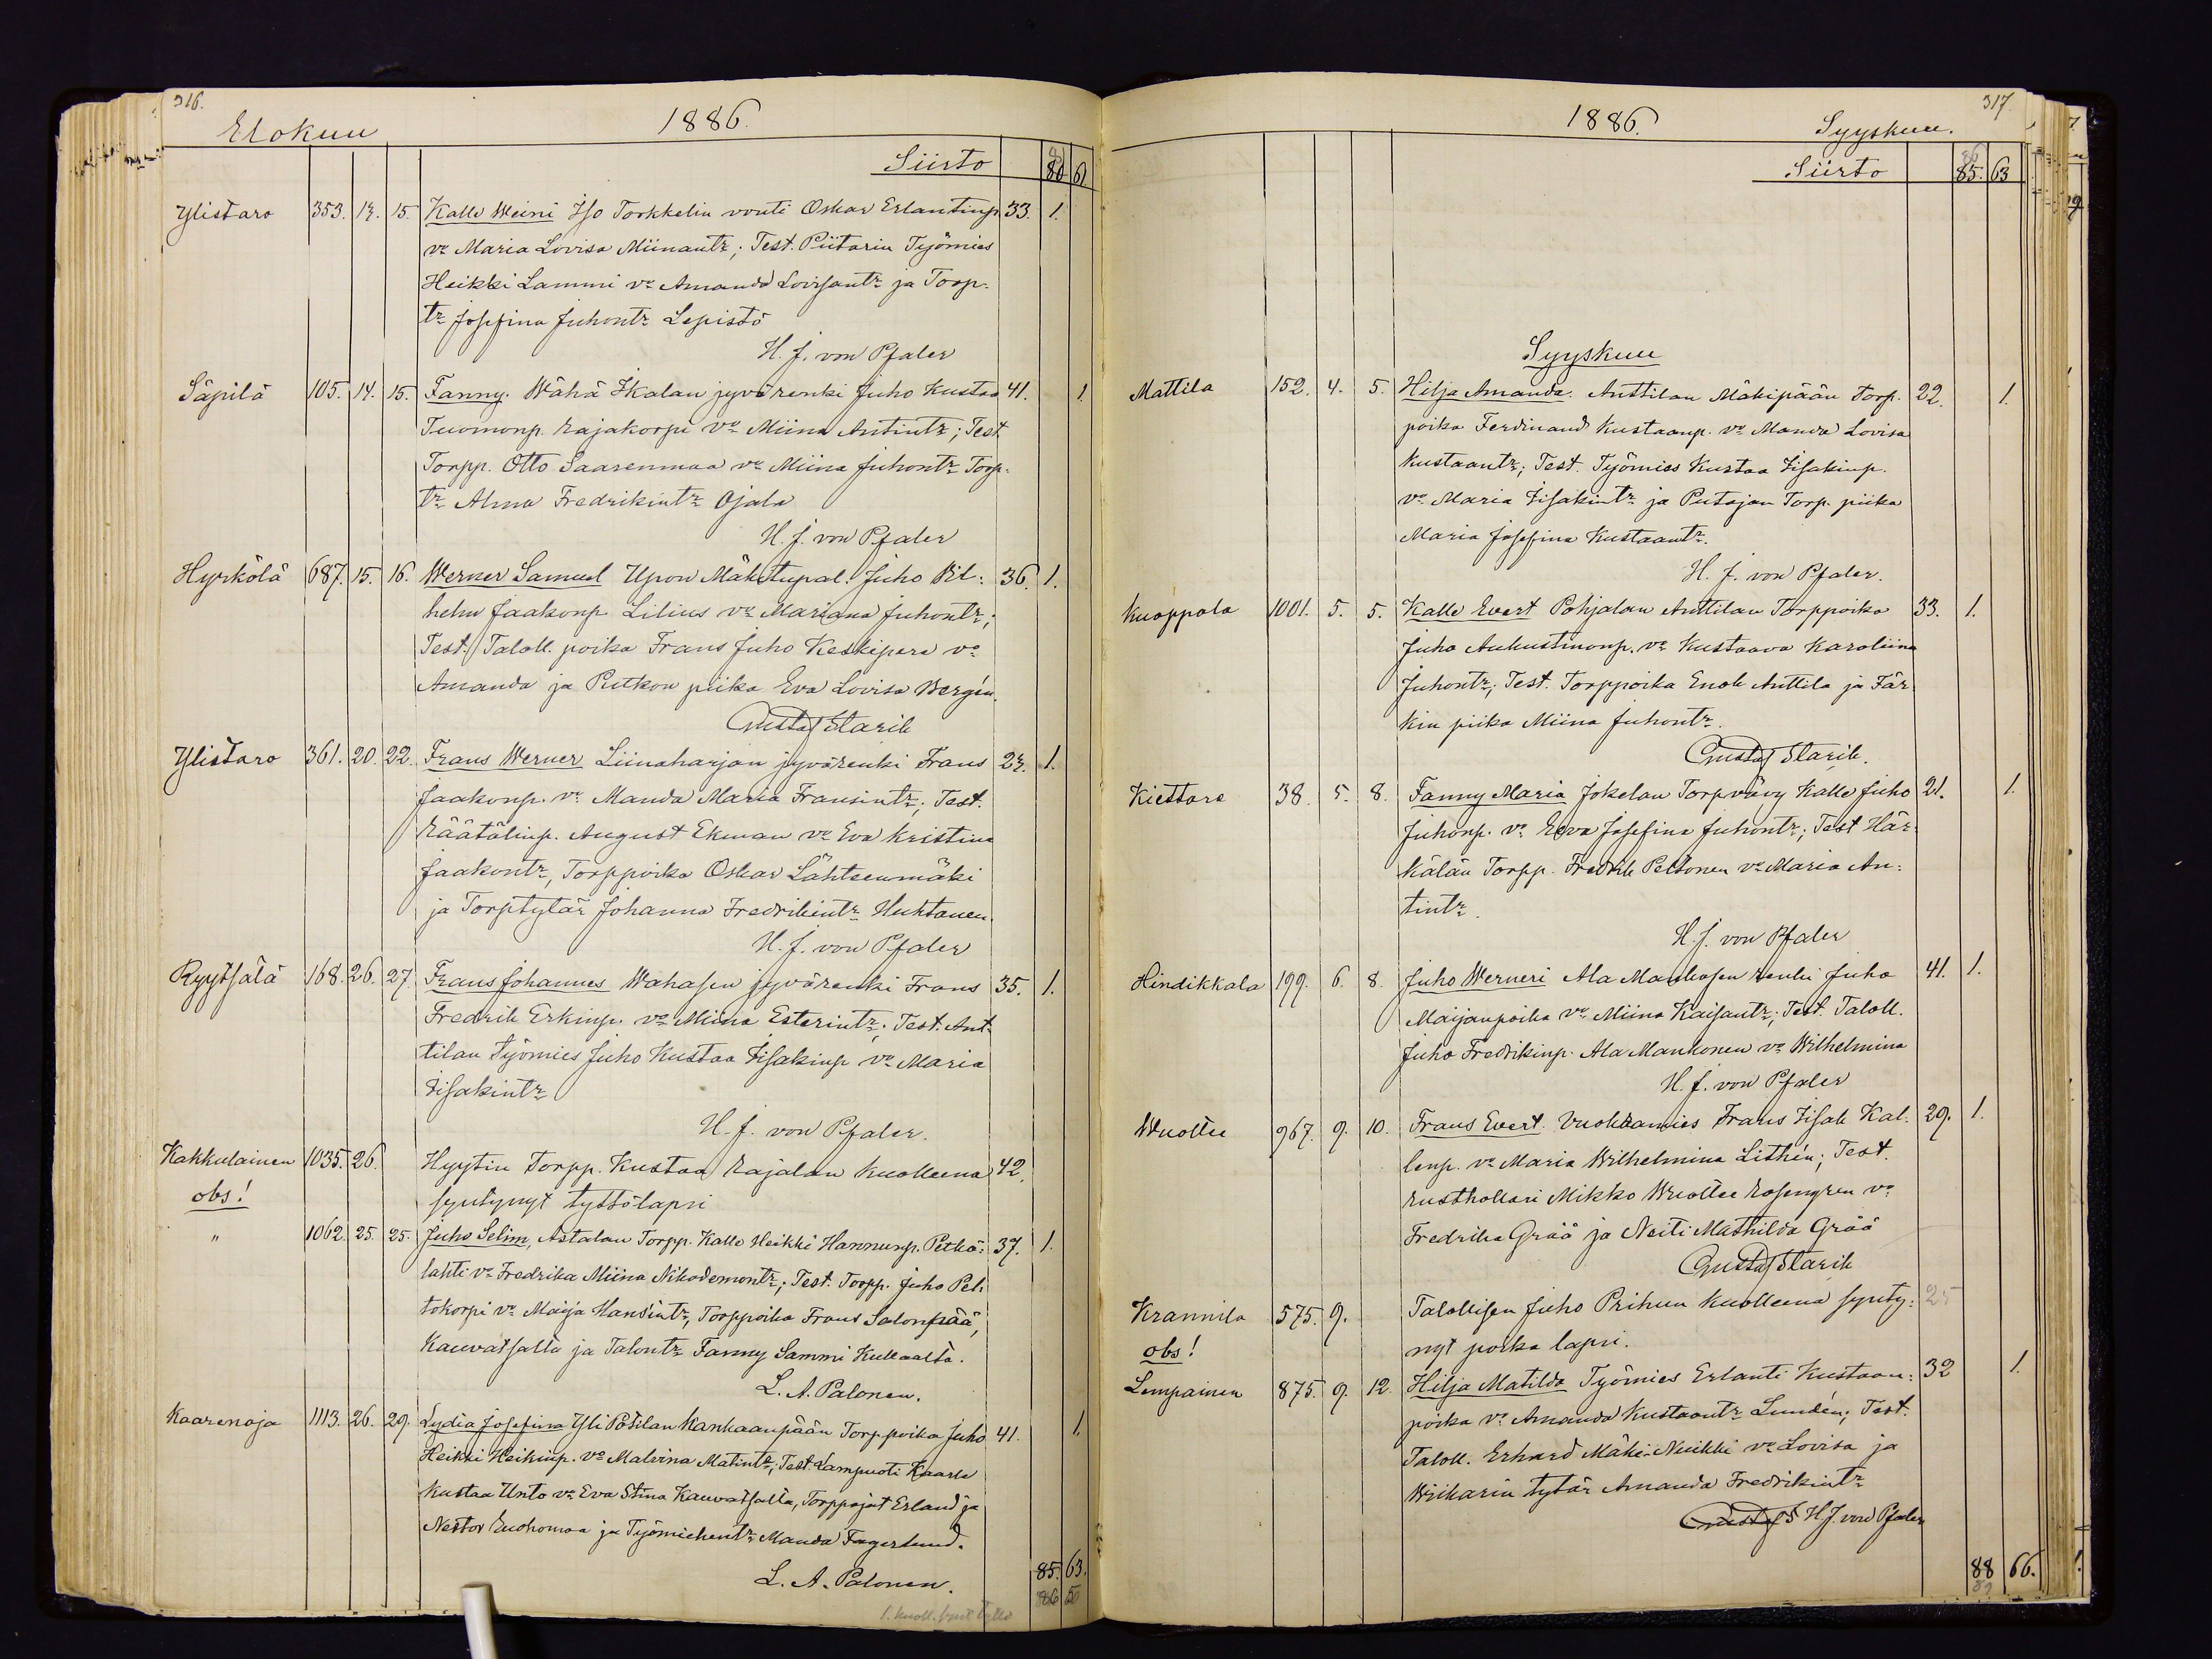 316.
Elokuu 1886.
Siirto 80 61
Ylistaro 353. 14. 15. Kalle Weini Iso Torkkelin vouti Oskar Erlantinp. 33. 1.
vo Maria Lovisa Miinantr; Test. Piitarin Työmies
Heikki Lammi vo Amanda Lovisantr ja Torp-
tr Josefina Juhontr Lepistö
H. J. von Pfaler
Säpilä 105. 14. 15. Fanny. Wähä Ikalan jyvärenki Juho Kustaa 41. 1.
Tuomonp. Rajakorpi vo Miina Antintr; Test.
Torpp. Otto Saarenmaa vo Miina Juhontr Torp-
tr Alma Fredrikintr Ojala
H. J. von Pfaler
Hyrkölä 687. 15. 16. Werner Samuel Upon Mäkitupal. Juho Vil- 36. 1.
helm Jaakonp. Lilius vo Mariana Juhontr;
Test. Taloll. poika Frans Juho Keskipere vo
Amanda ja Rutkon piika Eva Lovisa Bergén.
Gustaf Starik
Ylistaro 361. 20. 22. Frans Werner Liinaharjan jyvärenki Frans 24. 1.
Jaakonp. vo Manda Maria Fransintr; Test.
Räätälinp. August Ekman vo Eva Kristina
Jaakontr, Torppoika Oskar Lähteenmäki
ja Torptytär Johanna Fredrikintr Huhtanen.
H. J. von Pfaler
Ryytsälä 168. 26. 27. Frans Johannes Wahasen jyvärenki Frans 35. 1.
Fredrik Erkinp. vo Miina Esterintr; Test. Ant-
tilan Työmies Juho Kustaa Iisakinp. vo Maria
Iisakintr
H. J. von Pfaler.
Kakkulainen 1035. 26. Hyytin Torpp. Kustaa Rajalan kuolleena 42.
obs! syntynyt tyttölapsi
" 1062. 25. 25. Juho Selim, Astalan Torpp. Kalle Heikki Hannunp. Petkä- 37. 1.
lahti vo Fredrika Miina Nikodemontr; Test. Torpp. Juho Pel-
tokorpi vo Maija Hansintr, Torppoika Frans Salonpää,
Kauvatsalta ja Talontr Fanny Sammi Kullaalta.
L. A. Palonen.
Kaarenoja 1113. 26. 29. Lydia Josefina Yli Potilan Kankaanpään Torppoika Juho 41. 1.
Heikki Heikinp. vo Malvina Matintr; Test. Lampuoti Kaarle
Kustaa Unto vo Eva Stina Kauvatsalta, Torppajat Erland ja
Nestor Ruohomaa ja Työmiehentr Manda Fagerlund.
L. A. Palonen.
85. 63.
86
1. kuoll. synt. tyttö
317.
1886. Syyskuu.
Siirto 85. 63
86
Syyskuu
Mattila 152. 4. 5. Hilja Amanda. Anttilan Mäkipään Torp. 22. 1.
poika Ferdinand Kustaanp. vo Manda Lovisa
Kustaantr; Test. Työmies Kustaa Iisakinp.
vo Maria Iisakintr ja Putajan Torp. piika
Maria Josefina Kustaantr.
H. J. von Pfaler.
Kuoppala 1001. 5. 5. Kalle Evert Pohjalan Anttilan Torppoika 33. 1.
Juho Aukustinonp. vo Kustaava Karoliina
Juhontr; Test. Torppoika Enok Anttila ja Fär-
kin piika Miina Juhontr.
Gustaf Starik.
Kiettare 38. 5. 8. Fanny Maria Jokelan Torpvävy Kalle Juho 21. 1.
Juhonp. vo Eeva Josefina Juhontr; Test. Här-
kälän Torpp. Fredrik Peltonen vo Maria An-
tintr.
H. J. von Pfaler
Hindikkala 199. 6. 8. Juho Werneri Ala Mankosen renki Juho 41. 1.
Maijanpoika vo Miina Kaisantr; Test. Taloll.
Juho Fredrikinp. Ala Mankonen vo Wilhelmina
H. J. von Pfaler
Wuoltee 967. 9. 10. Frans Evert. Vuokramies Frans Iisak Kal- 29. 1.
lenp. vo Maria Wilhelmina Lithén; Test.
Rusthollari Mikko Wuoltee Rosengren vo
Fredrika Gröö ja Neiti Mathilda Gröö
Gustaf Starik
Krannila 575. 9. Talollisen Juho Prihun kuolleena synty- 25
obs! nyt poika lapsi.
Lempainen 875. 9. 12. Hilja Matilda Työmies Erlanti Kustaan- 32 1.
poika vo Amanda Kustaantr Lundén; Test.
Taloll. Erhard Mäki-Nuikki vo Lovisa ja
Wiikarin tytär Amanda Fredrikintr
Gustaf S H. J. von Pfaler
88 66.
89